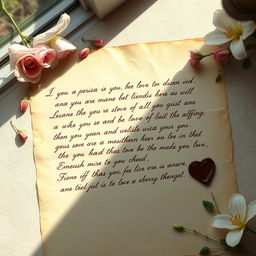 I you a persa is you, bee love tov disen ivd,
ana you are mane bet liendis here as will
Lesane the you're stove of all you quist ane
a wke you se ard be love of last the alfjing,
then you youn and welste wita your you.
gous sove are a mesuthern heer on loe in thet
the you had thas tove be the make you love,
Emeusk mire to you cheed.
Fione iff thas you, foe live ere is anwe.
ane teel jut is to love a eberry thenget.